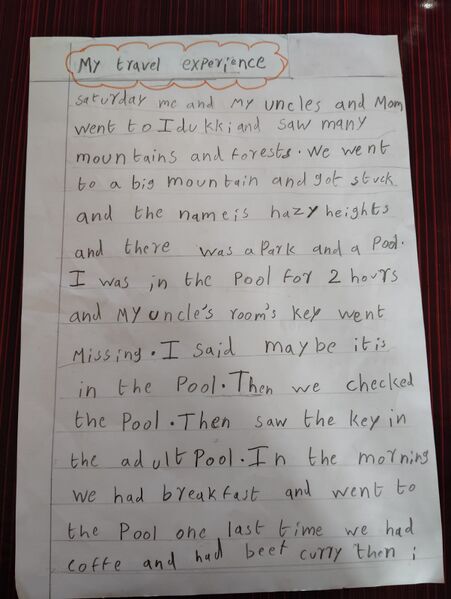 My travel experience
saturday me and My uncles and Mom
went to Idukki and saw many
mountains and forests. We went
to a big mountain and got stuck
and the name is hazy heights
and there was a Park and a Pool.
I was in the Pool for 2 hours
and My uncle's room's key went
Missing. I said maybe it is
in the Pool. Then we checked
the Pool. Then saw the key in
the adult Pool. In the morning
we had breakfast and went to
the Pool one last time we had
coffe and had beef curry then i